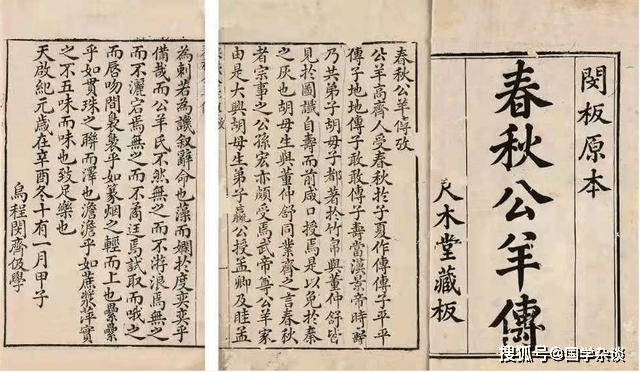 閔板原本
春秋公羊傳
尺木堂藏板
春秋公羊傳攷
公羊高齊人受春秋於子夏作傳傳子平平
傳子地地傳子敢敢傳子壽當漢景帝時壽
乃共弟子胡毋子都著於竹帛與董仲舒皆
見於圖讖自壽而前咸口授焉是以免於秦
之灰也胡毋生與董仲舒同業齊之言春秋
者宗事之公孫宏亦頗受焉武帝尊公羊家
由是大興胡毋生弟子嬴公授孟卿及眭孟
為刺若為譏叙辭命也藻而嫺於度奕奕乎
備哉而公羊氏不然無之而不游浪焉無之
而不灑宕焉無之而不焉試取而哦之
而唇吻間裊裊乎如篆烟之輕而上也纍纍
乎如貫珠之聯而澤也澹澹乎如蔗漿萍實
之不五味而味也足樂也
天啟紀元歲在辛酉冬十有一月甲子
烏程閔齊伋學
搜狐号@国学杂谈